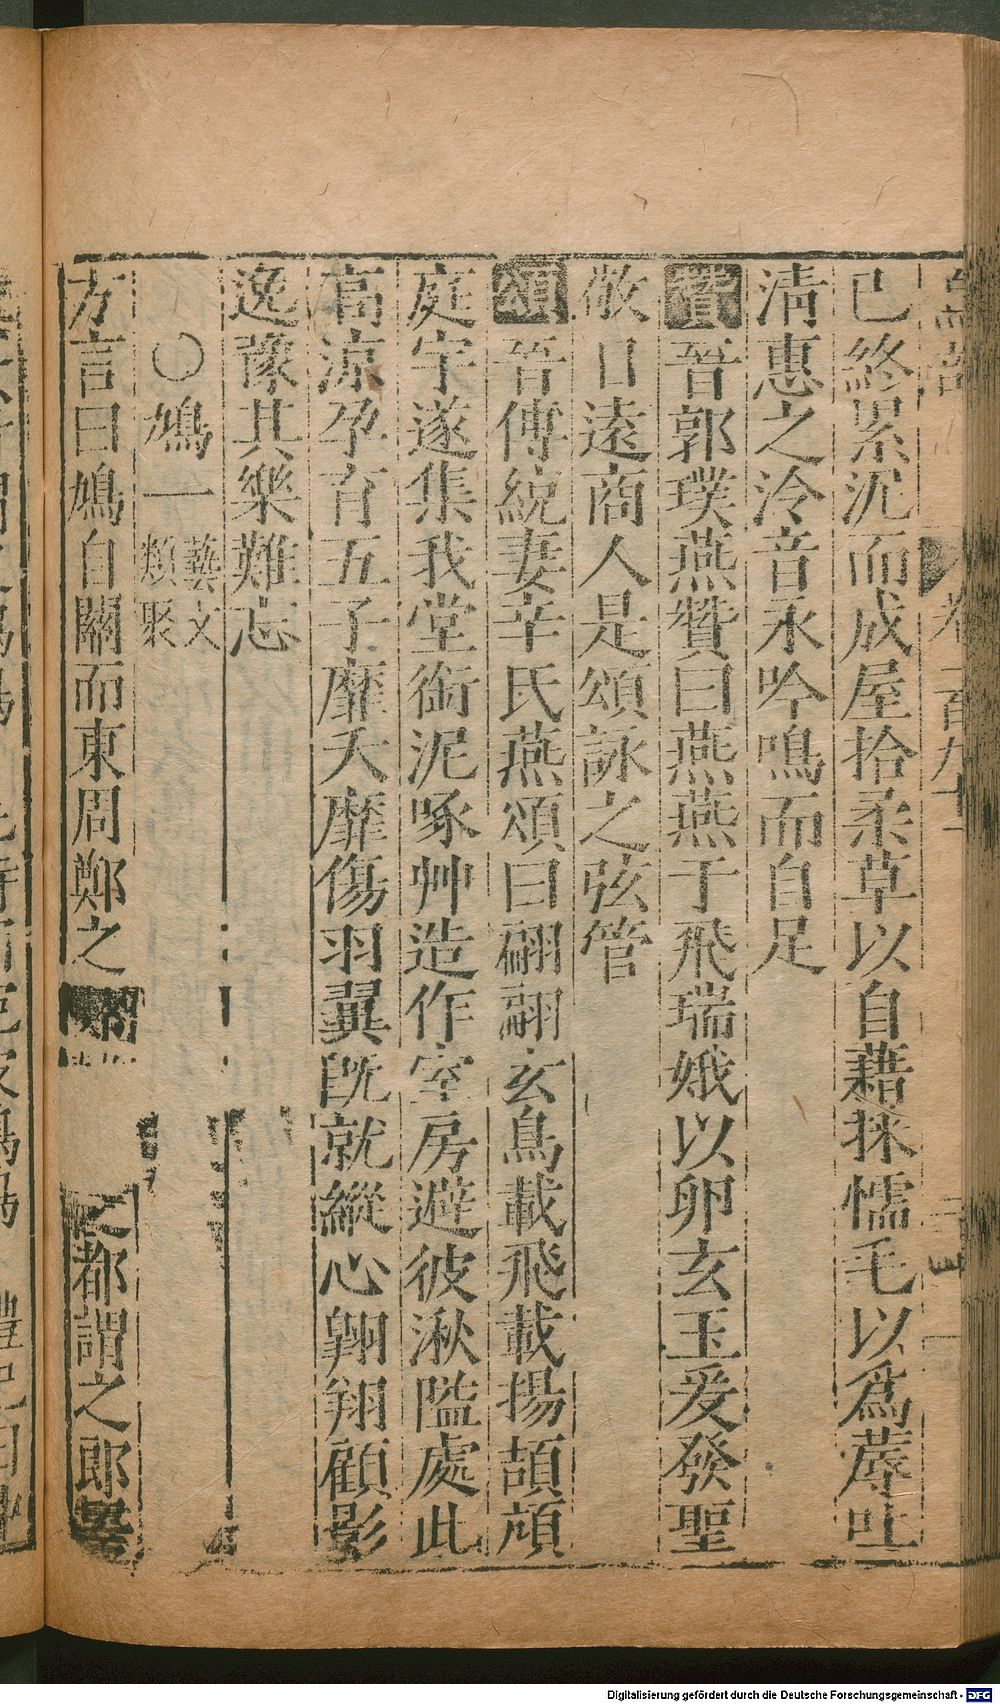 卷一百九十
已終累沉而成屋拾柔草以自藉採懦毛以爲蓐吐
淸惠之泠音永吟鳴而自足
贊晉郭璞燕贊曰燕燕于飛瑞娥以卵玄玉爰發聖
敬日遠商人是頌詠之弦管
頌晉傅統妻辛氏燕頌曰翩翩玄鳥載飛載揚頡頏
庭宇遂集我堂銜泥啄艸造作室房避彼湫隘處此
高涼孕育五子靡夭靡傷羽翼旣就縱心翱翔顧影
逸豫其樂難忘
○鳩一藝文類聚
方言曰鳩自關而東周鄭之都謂之郎
Digitalisierung gefördert durch die Deutsche Forschungsgemeinschaft - DFG